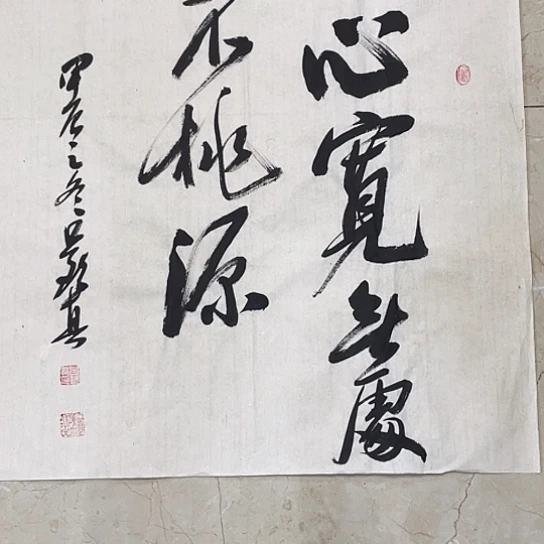 心寬無處
不桃源
甲辰之冬